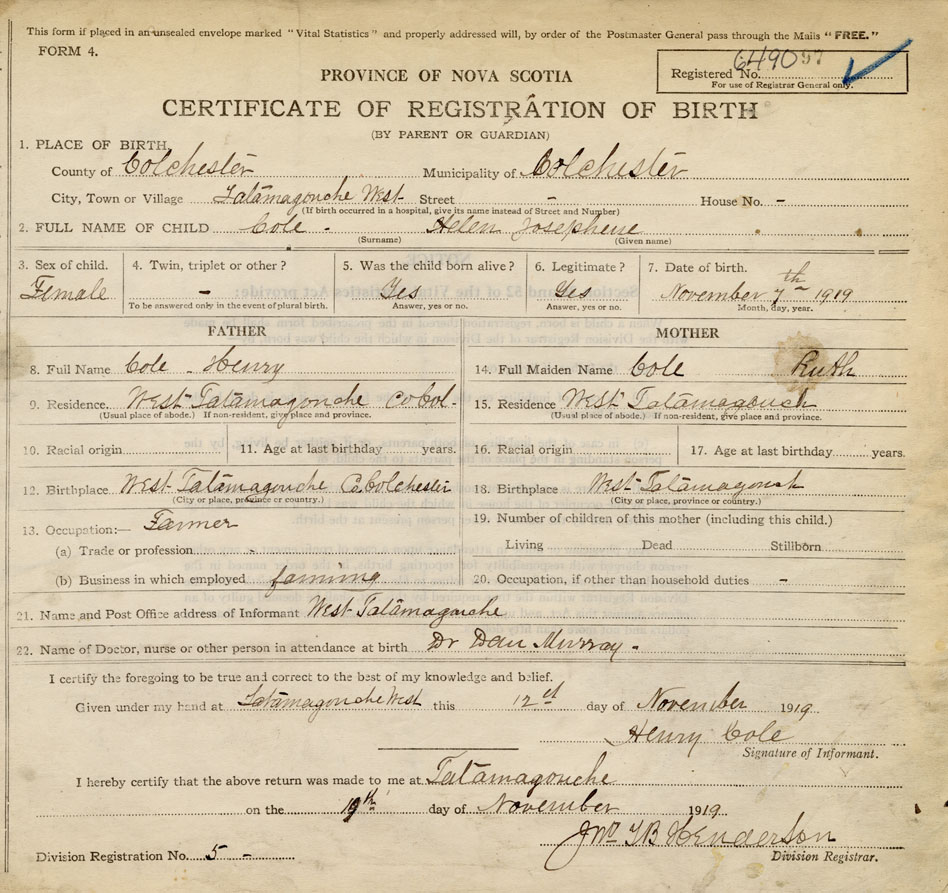 This form if placed in an unsealed envelope marked "Vital Statistics" and properly addressed will, by order of the Postmaster General pass through the Mails "FREE."
FORM 4.
Registered No. 649097
For use of Registrar General only.
PROVINCE OF NOVA SCOTIA
CERTIFICATE OF REGISTRATION OF BIRTH
(BY PARENT OR GUARDIAN)
1. PLACE OF BIRTH
County of Colchester Municipality of Colchester
City, Town or Village Tatamagouche West Street - House No. -
(If birth occurred in a hospital, give its name instead of Street and Number)
2. FULL NAME OF CHILD Cole - Helen Josephene
(Surname) (Given name)
3. Sex of child. 4. Twin, triplet or other? 5. Was the child born alive? 6. Legitimate? 7. Date of birth.
Female - Yes Yes November 7th 1919
To be answered only in the event of plural birth. Answer, yes or no. Answer, yes or no. Month, day, year.
FATHER MOTHER
8. Full Name Cole - Henry 14. Full Maiden Name Cole Ruth
9. Residence. West Tatamagouche Co Col. 15. Residence West Tatamagouch
(Usual place of abode.) If non-resident, give place and province. (Usual place of abode.) If non-resident, give place and province.
10. Racial origin 11. Age at last birthday years. 16. Racial origin 17. Age at last birthday years.
12. Birthplace West Tatamagouche Co. Colchester 18. Birthplace West Tatamagouch
(City or place, province or country.) (City or place, province or country.)
13. Occupation:— Farmer 19. Number of children of this mother (including this child.)
(a) Trade or profession - Living Dead Stillborn
(b) Business in which employed farming 20. Occupation, if other than household duties -
21. Name and Post Office address of Informant West Tatamagouche
22. Name of Doctor, nurse or other person in attendance at birth Dr Dan Murray -
I certify the foregoing to be true and correct to the best of my knowledge and belief.
Given under my hand at Tatamagouche West this 12 day of November 1919
Henry Cole
Signature of Informant.
I hereby certify that the above return was made to me at Tatamagouche
on the 19th day of November 1919
Henderson
Division Registration No. 5 - Division Registrar.